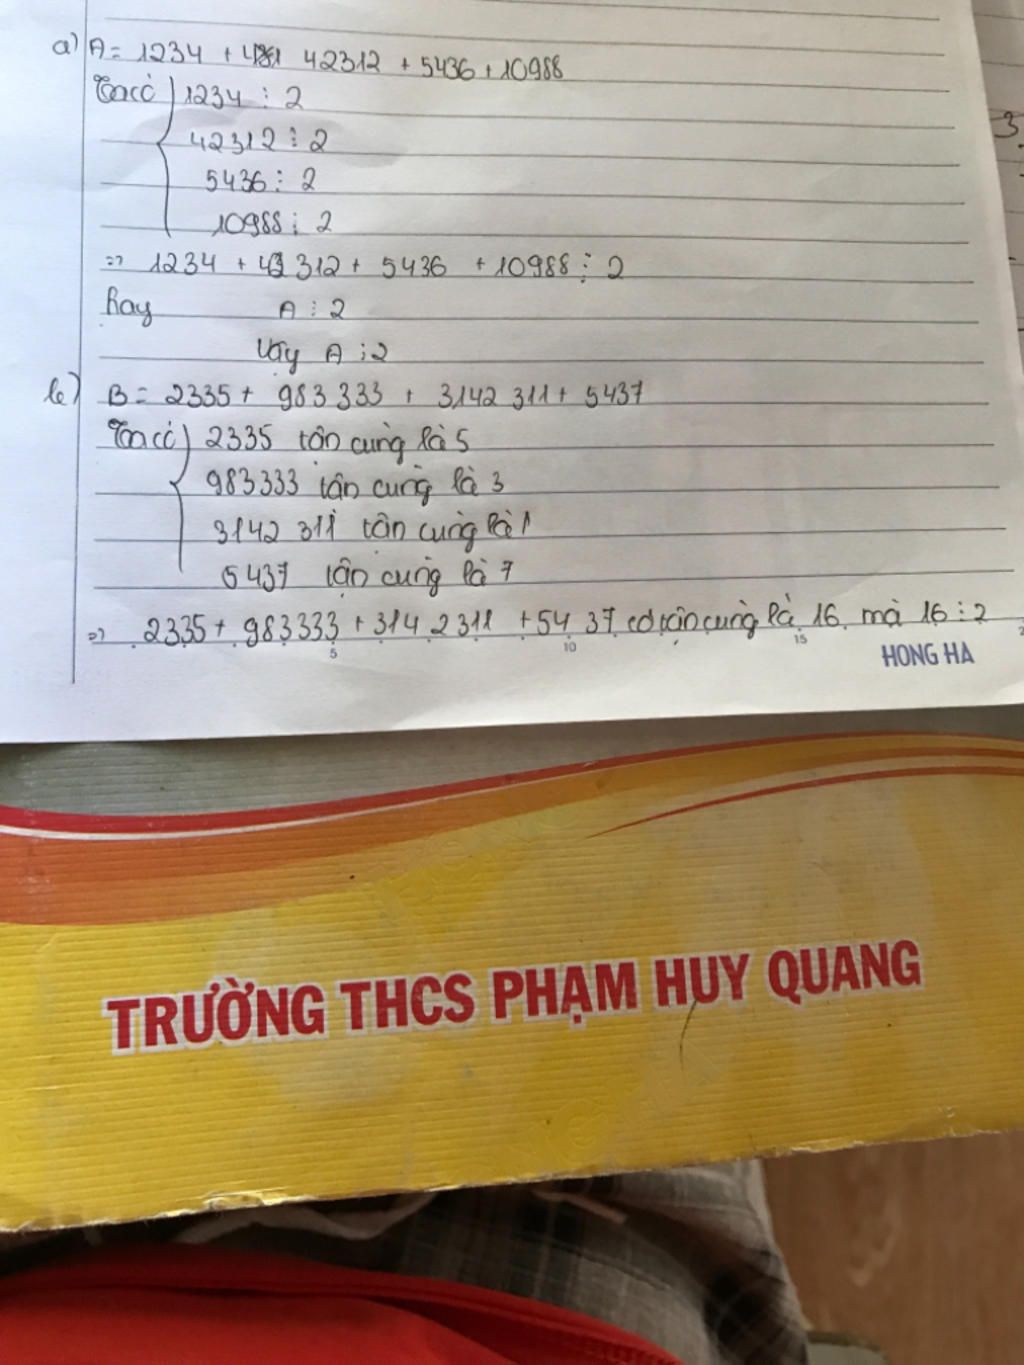 a) A = 1234 + 42312 + 5436 + 10988
Ta có 1234 ⋮ 2
42312 ⋮ 2
5436 ⋮ 2
10988 ⋮ 2
=> 1234 + 42312 + 5436 + 10988 ⋮ 2
Hay A ⋮ 2
Vậy A ⋮ 2
b) B = 2335 + 983333 + 3142311 + 5437
Ta có 2335 tận cùng là 5
983333 tận cùng là 3
3142311 tận cùng là 1
5437 tận cùng là 7
=> 2335 + 983333 + 3142311 + 5437 có tận cùng là 16 mà 16 ⋮ 2
5 10 15
HONG HA
TRƯỜNG THCS PHẠM HUY QUANG